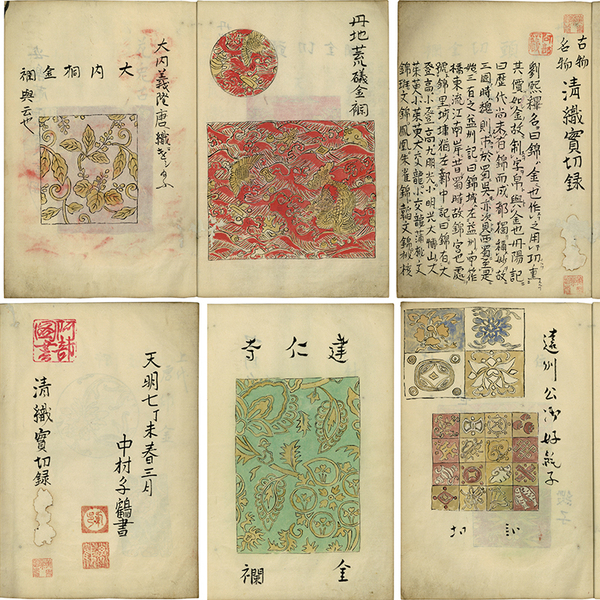 古物
名物
清織寶切録
劉熙釋名曰錦ハ金也作之用功重
其價如金故制字帛與金也丹陽記
曰歴代尚未有錦而成都獨擅妙故
三國時魏則市於蜀吳亦次西蜀至是
始三百之益州記曰錦城在益州南笮
橋東流江南岸昔蜀時故錦宮也處
號錦里城墉猶在鄴中記曰錦有大
登高小登高大明光小明光大博山大
茱萸小茱萸大交龍小交龍蒲桃文
錦斑文錦鳳凰朱雀錦韜文錦桃核
丹地荒磯金襴
大内義隆唐織
大内桐金
襴與云也
遠州公御好純子
建仁寺
金襴
天明七丁未春三月
中村子鶴書
清織寶切録